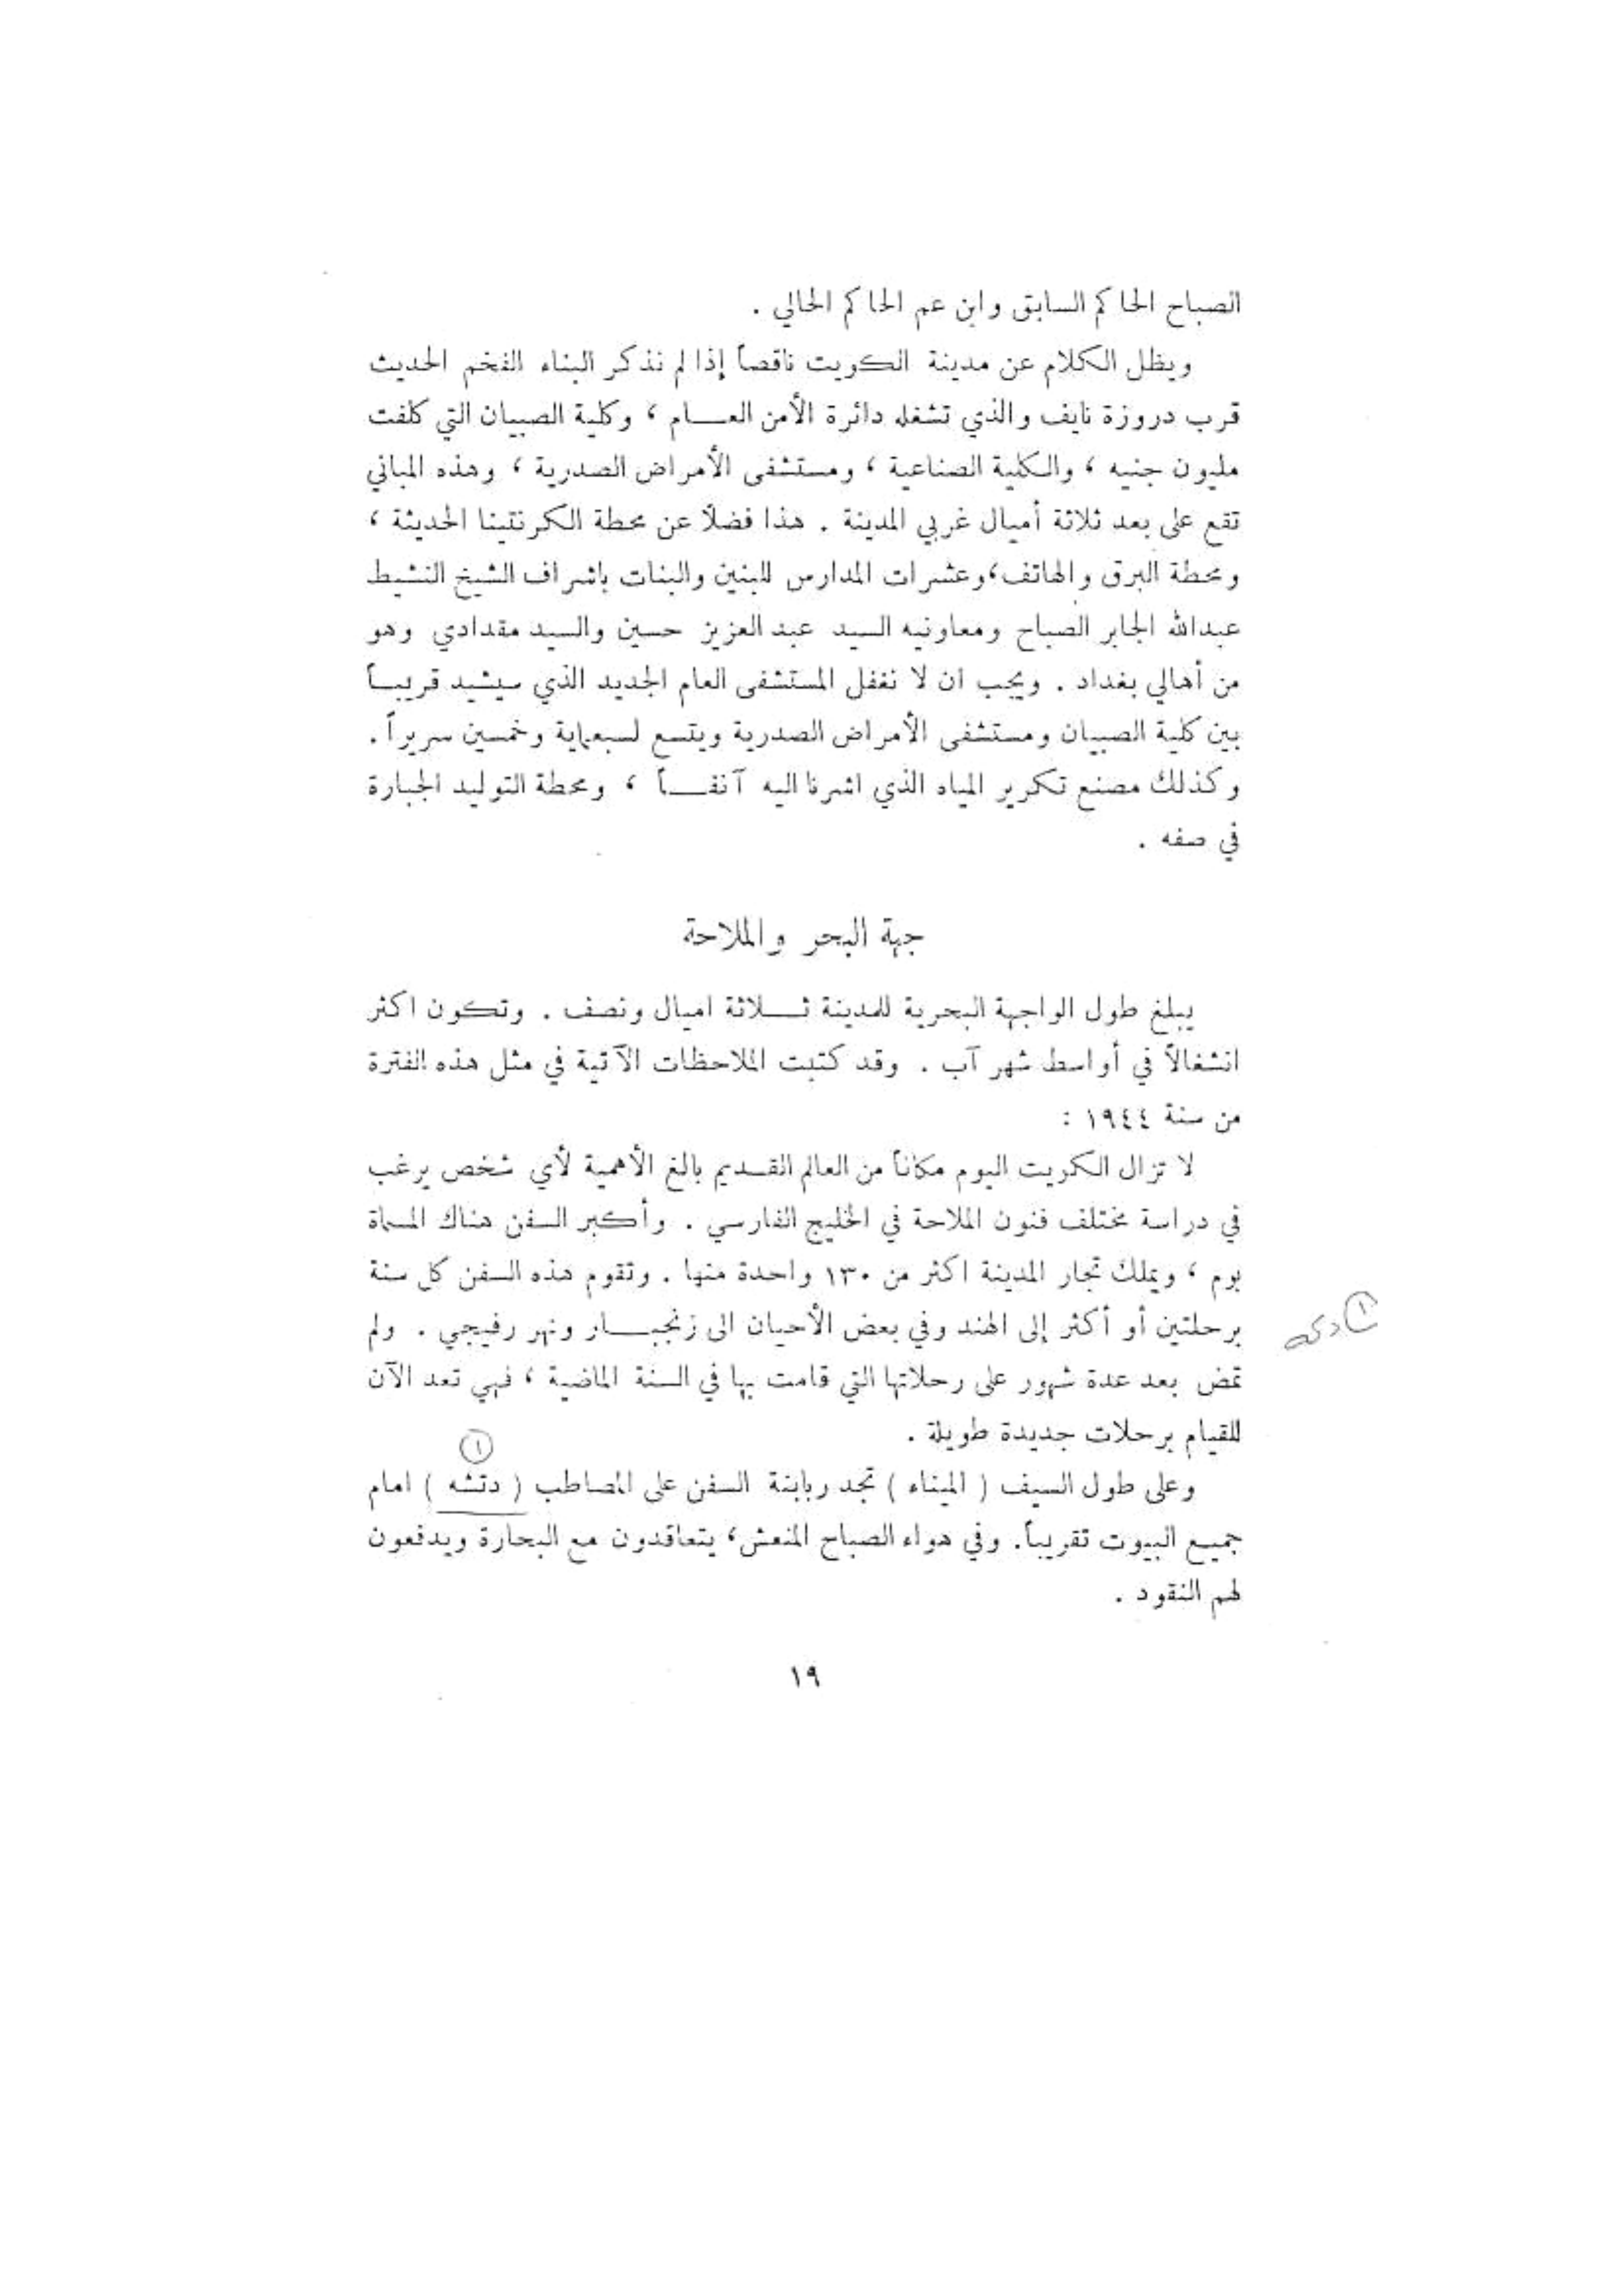 الصباح الحاكم السابق وابن عم الحاكم الحالي .
ويظل الكلام عن مدينة الكويت ناقصاً إذا لم نذكر البناء الفخم الحديث
قرب دروزة نايف والذي تشغله دائرة الأمن العــام ، وكلية الصبيان التي كلفت
مليون جنيه ، والكلية الصناعية ، ومستشفى الأمراض الصدرية ، وهذه المباني
تقع على بعد ثلاثة أميال غربي المدينة . هذا فضلاً عن محطة الكرنتينا الحديثة ،
ومحطة البرق والهاتف،وعشرات المدارس للبنين والبنات باشراف الشيخ النشيط
عبدالله الجابر الصباح ومعاونيه السيد عبد العزيز حسين والسيد مقدادي وهو
من أهالي بغداد . ويجب ان لا نغفل المستشفى العام الجديد الذي سيشيد قريبــاً
بين كلية الصبيان ومستشفى الأمراض الصدرية ويتسع لسبعماية وخمسين سريراً .
وكذلك مصنع تكرير المياه الذي اشرنا اليه آنفــاً ، ومحطة التوليد الجبارة
في صفه .
جهة البحر والملاحة
يبلغ طول الواجهة البحرية للمدينة ثــلاثة اميال ونصف . وتكون اكثر
انشغالاً في أواسط شهر آب . وقد كتبت الملاحظات الآتية في مثل هذه الفترة
من سنة ١٩٤٤ :
لا تزال الكويت اليوم مكاناً من العالم القــديم بالغ الأهمية لأي شخص يرغب
في دراسة مختلف فنون الملاحة في الخليج الفارسي . وأكبر السفن هناك المسماة
بوم ، ويملك تجار المدينة اكثر من ١٣٠ واحدة منها . وتقوم هذه السفن كل سنة
برحلتين أو أكثر إلى الهند وفي بعض الأحيان الى زنجبــار ونهر رفيجي . ولم
تمض بعد عدة شهور على رحلاتها التي قامت بها في السنة الماضية ، فهي تعد الآن
للقيام برحلات جديدة طويلة .
١
وعلى طول السيف ( الميناء ) تجد ربابنة السفن على المصاطب ( دتشه ) امام
جميع البيوت تقريباً. وفي هواء الصباح المنعش، يتعاقدون مع البحارة ويدفعون
لهم النقود .
١ دكه
١٩